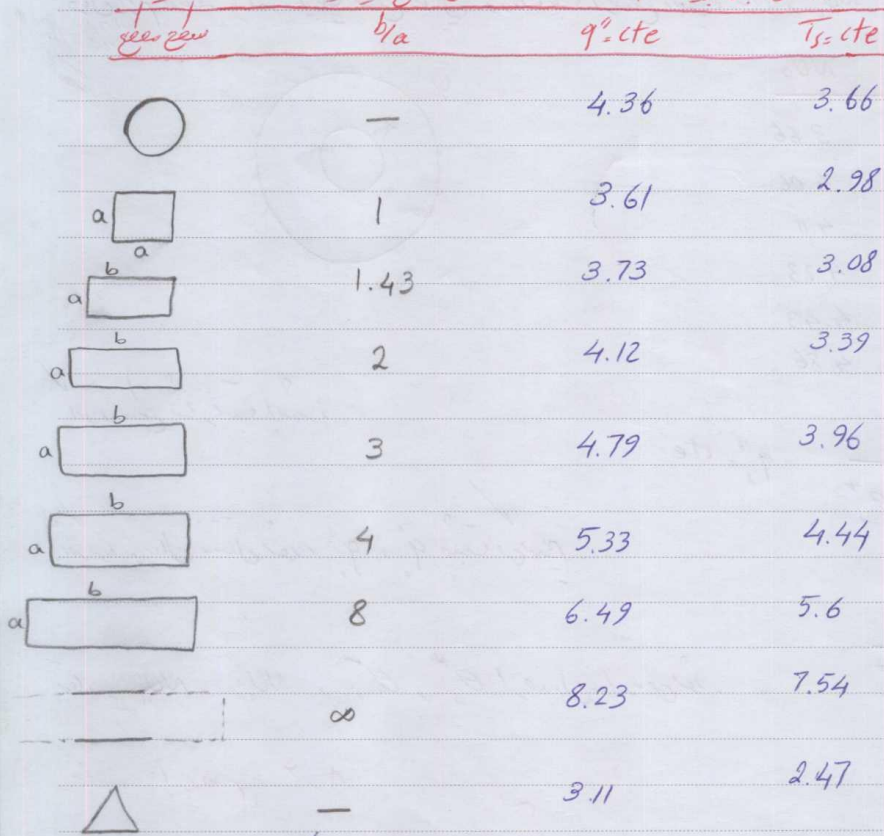 سطح مقطع b/a q"=cte Ts=cte
— 4.36 3.66
a a 1 3.61 2.98
a b 1.43 3.73 3.08
a b 2 4.12 3.39
a b 3 4.79 3.96
a b 4 5.33 4.44
a b 8 6.49 5.6
∞ 8.23 7.54
— 3.11 2.47